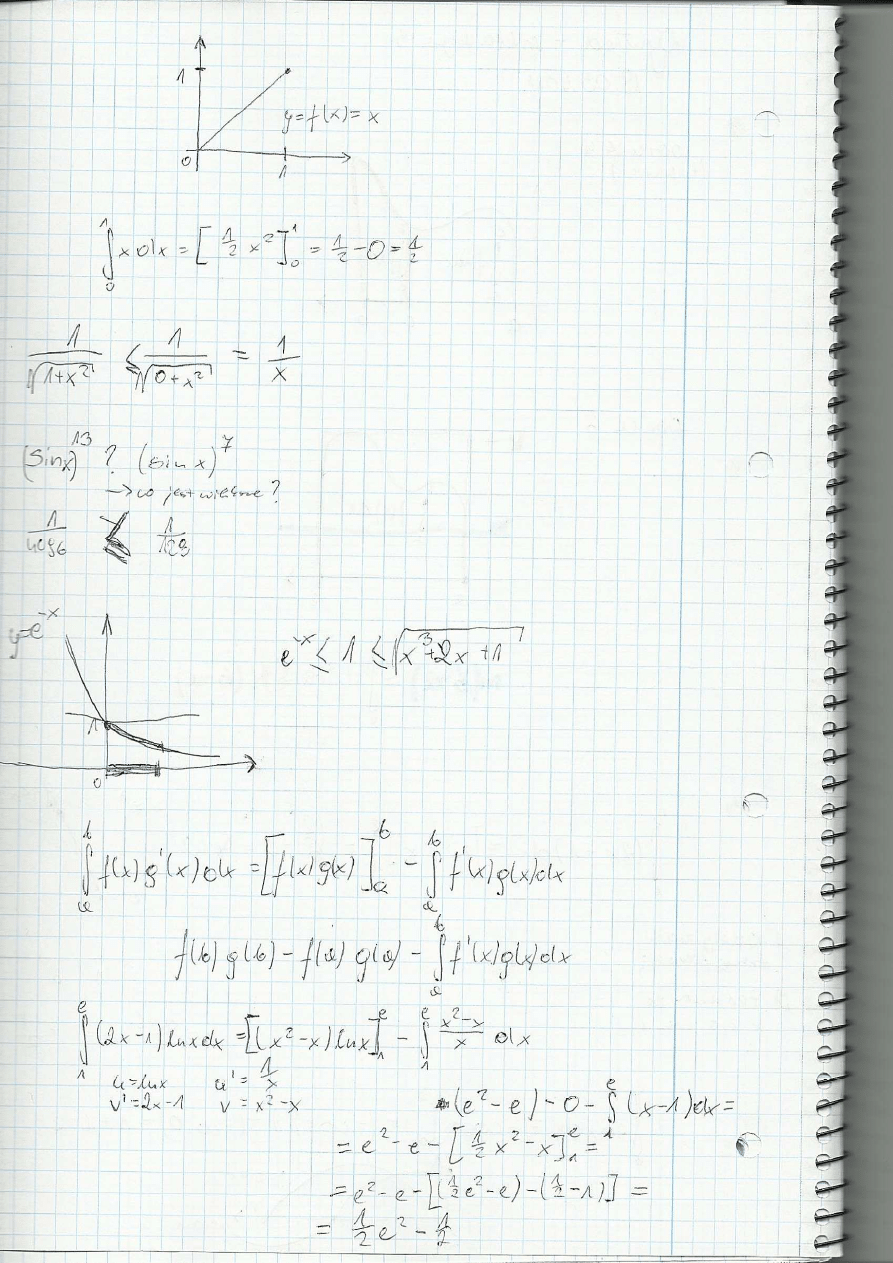 1
y=f(x)=x
0
1
∫₀¹ x dx = [½ x²]₀¹ = ½ - 0 = ½
1/√(1+x²) ≤ 1/√(0+x²) = 1/x
(sin x)¹³ ? (sin x)⁷
→ co jest większe?
1/4096 ≤ 1/128
y=e⁻ˣ
e⁻ˣ ≤ 1 ≤ √(x³+2x+1)
1
0
∫ₐᵇ f(x) g'(x) dx = [f(x) g(x)]ₐᵇ - ∫ₐᵇ f'(x) g(x) dx
f(b) g(b) - f(a) g(a) - ∫ₐᵇ f'(x) g(x) dx
∫₁ᵉ (2x-1) ln x dx = [(x²-x) ln x]₁ᵉ - ∫₁ᵉ (x²-x)/x dx
u=lnx u'=1/x
v'=2x-1 v=x²-x
(e²-e) - 0 - ∫₁ᵉ (x-1) dx =
= e² - e - [½ x² - x]₁ᵉ =
= e² - e - [(½e² - e) - (½ - 1)] =
= ½ e² - ½